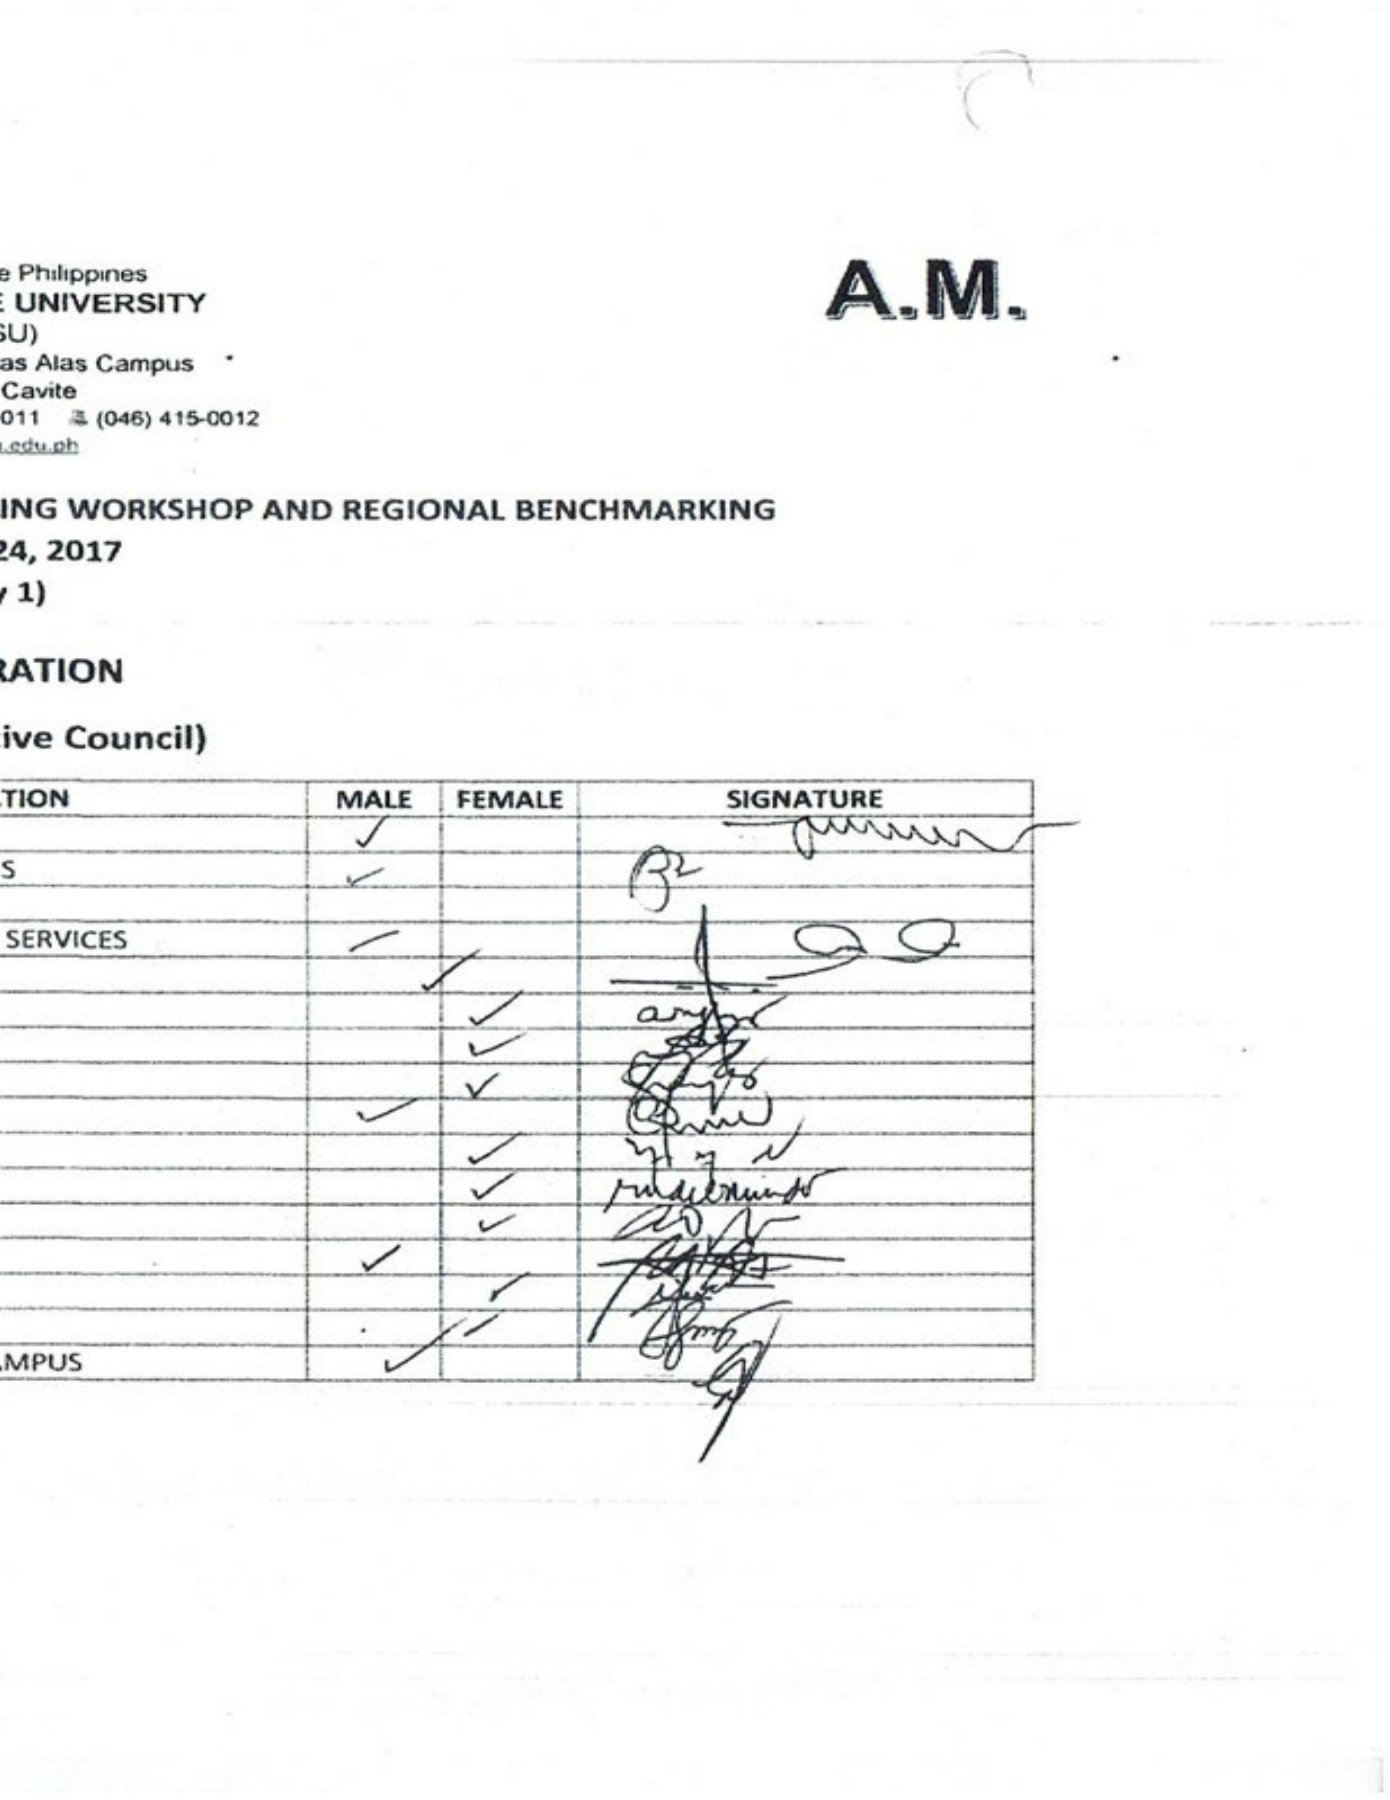 e Philippines
A.M.
E UNIVERSITY
SU)
as Alas Campus
Cavite
011 (046) 415-0012
.edu.ph
ING WORKSHOP AND REGIONAL BENCHMARKING
24, 2017
y 1)
RATION
ive Council)
TION MALE FEMALE SIGNATURE
S
SERVICES
AMPUS